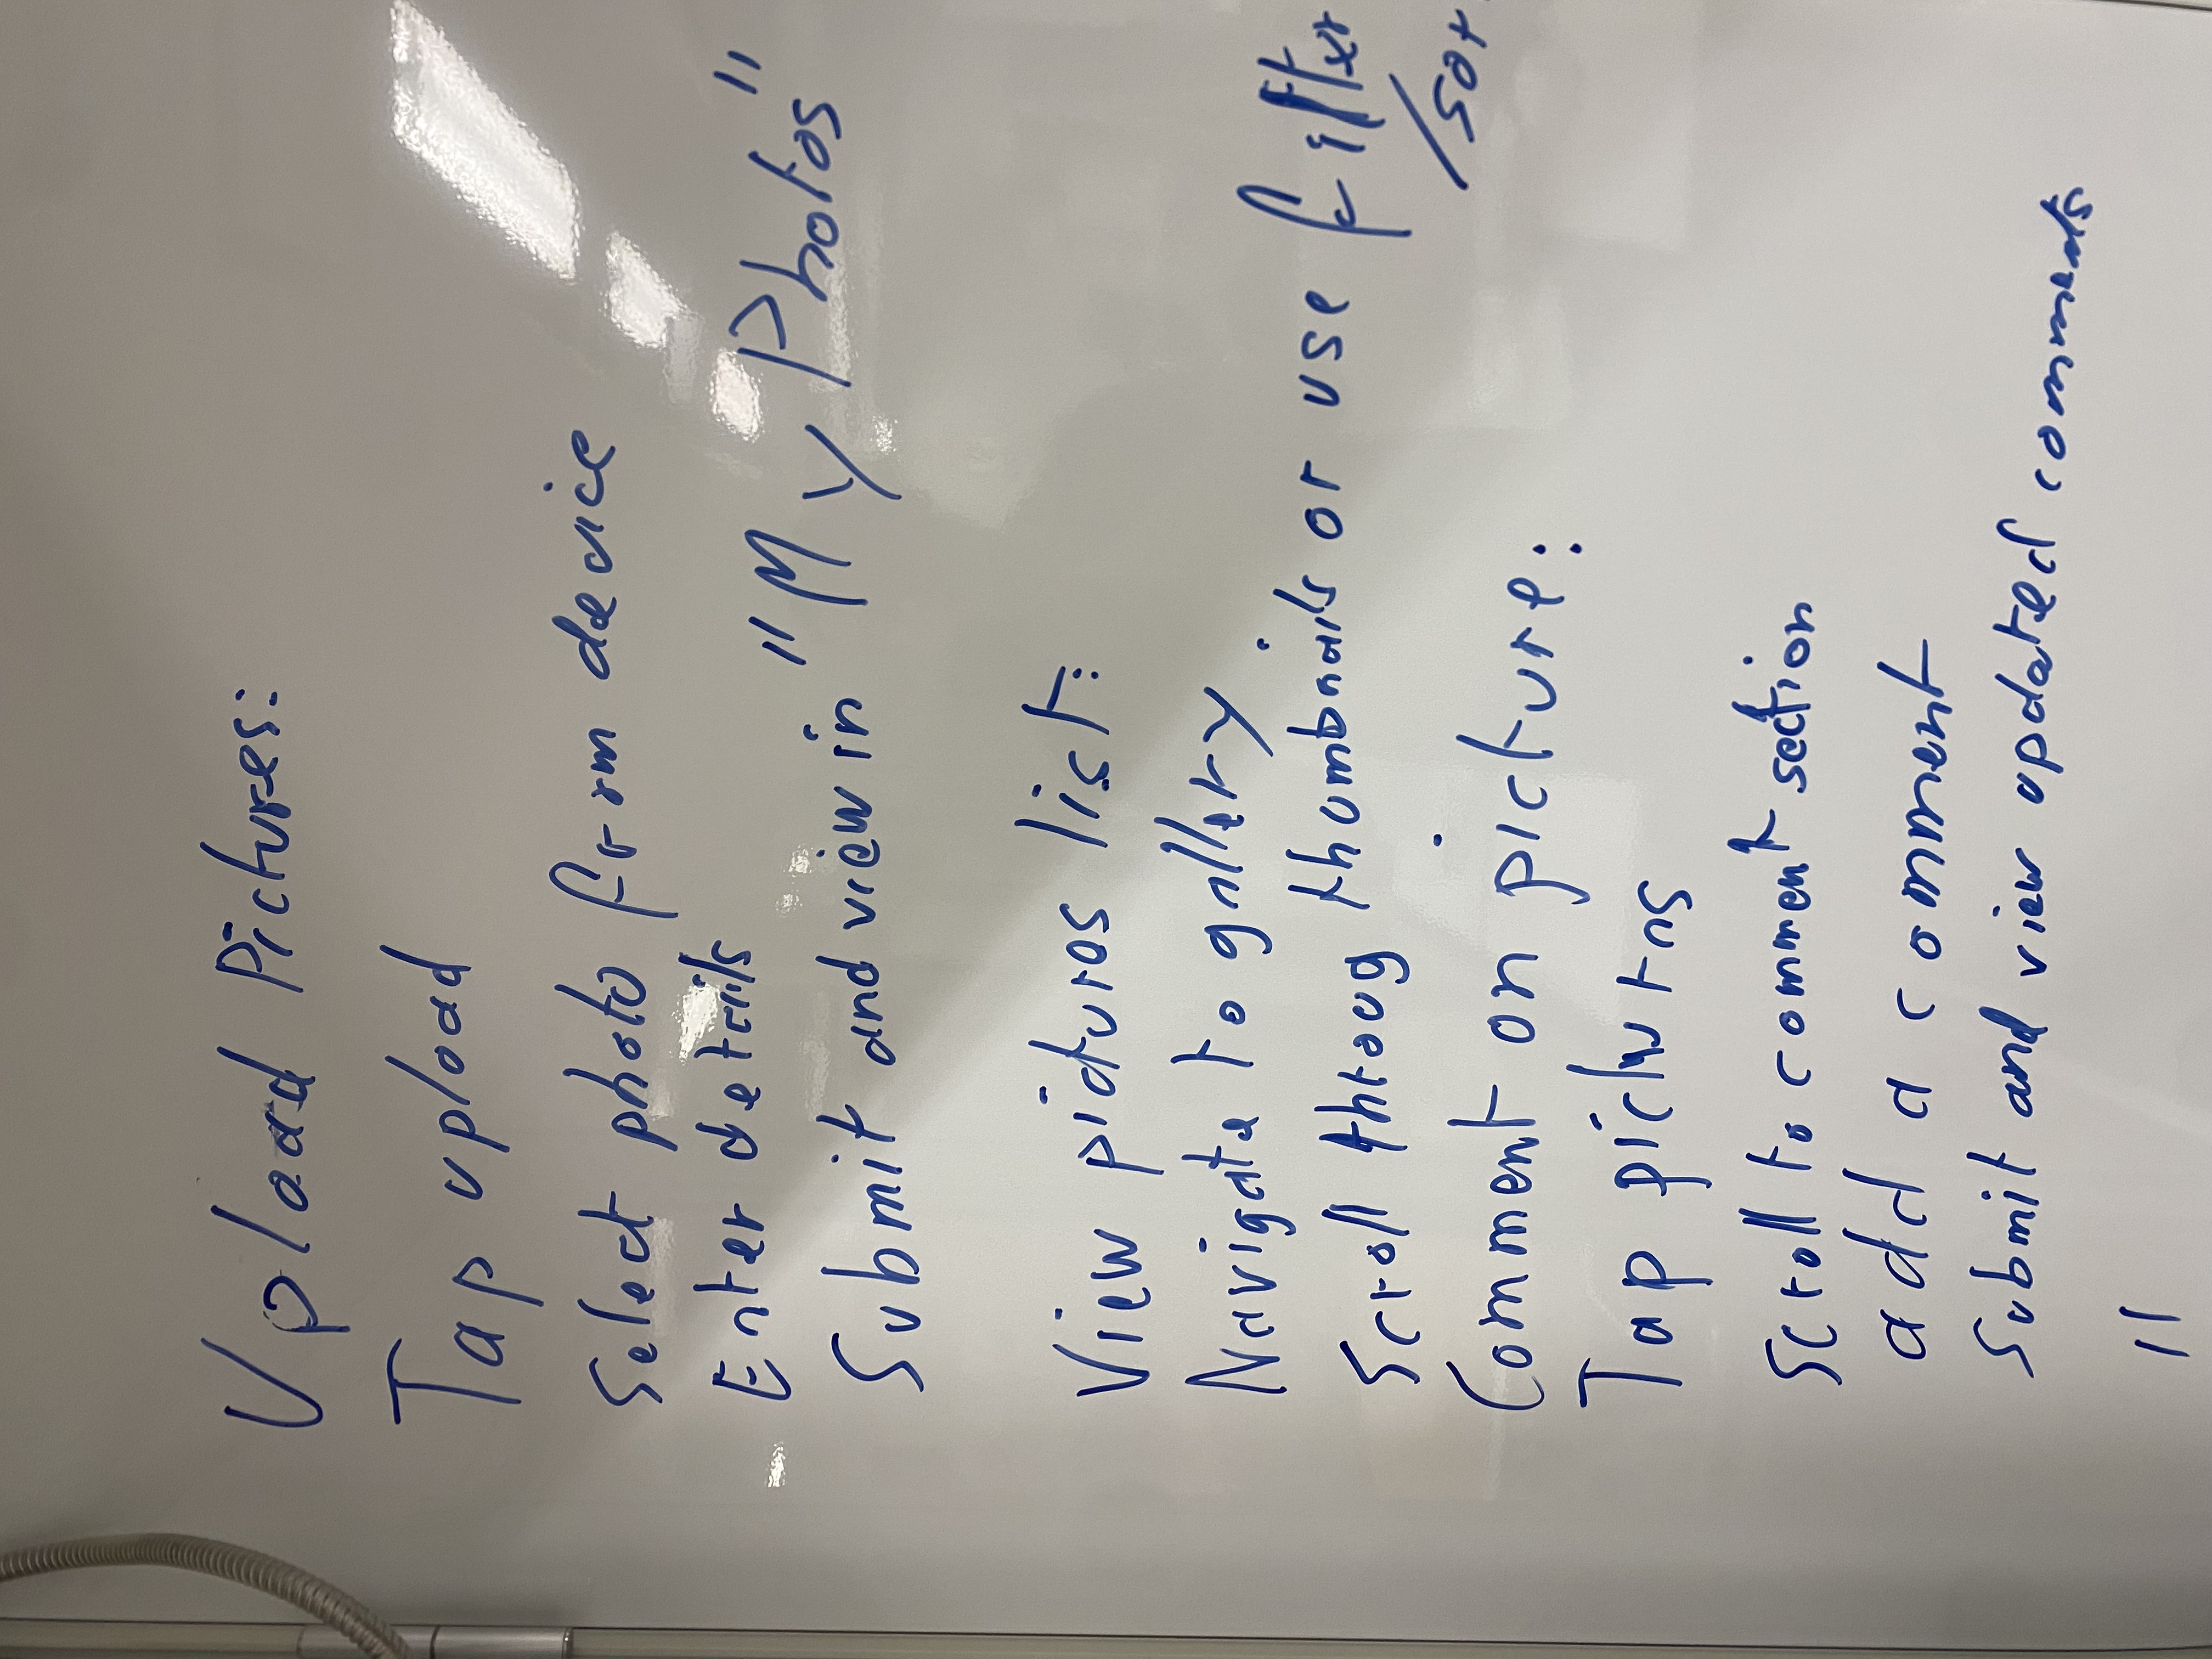 Upload Pictures:
Tap upload
Select photo form device
Enter details
Submit and view in "My Photos"
View pictures list:
Navigate to gallery.
Scroll throug thumbnails or use filter
/sor
Comment on picture:
Tap pictures
Scroll to comment section
add a comment
Submit and view updated comments
"